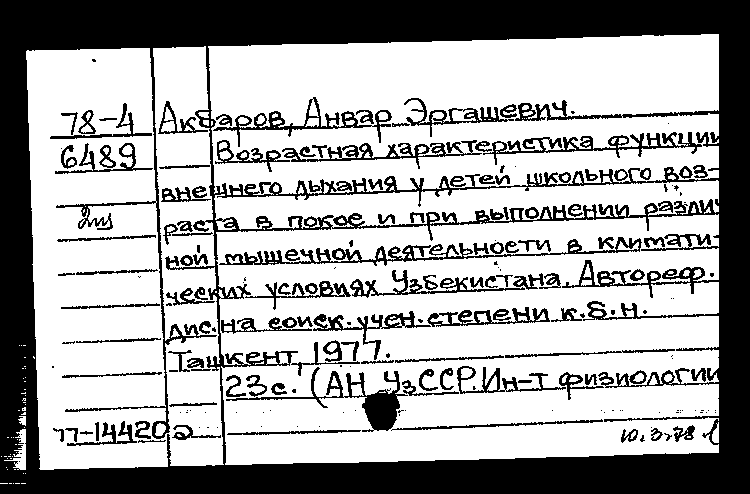 78-4 Акбаров, Анвар Эргашевич.
6489 Возрастная характеристика функции
внешнего дыхания у детей школьного воз-
раста в покое и при выполнении различ
ной мышечной деятельности в климати-
ческих условиях Узбекистана. Автореф.
дис. на соиск. учен. степени к.б.н.
Ташкент, 1977.
23с. (АН УзССР. Ин-т физиологии
77-14420 10.3.78